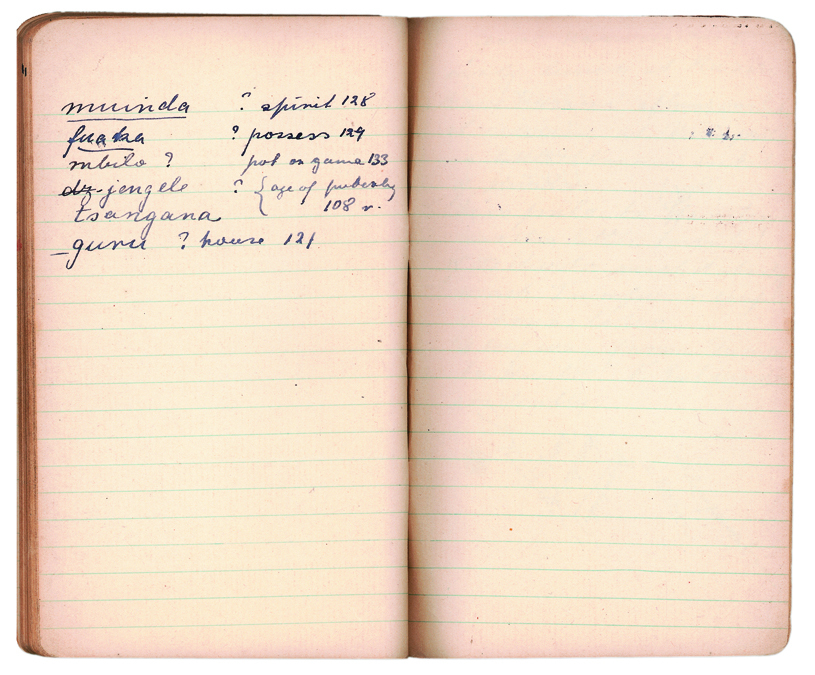 muinda ? spirit 128
fuaka ? possess 129
mbito ? pot or game 133
dz-jengele ? { age of puberty
tsangana 108 r.
_guru ? house 121